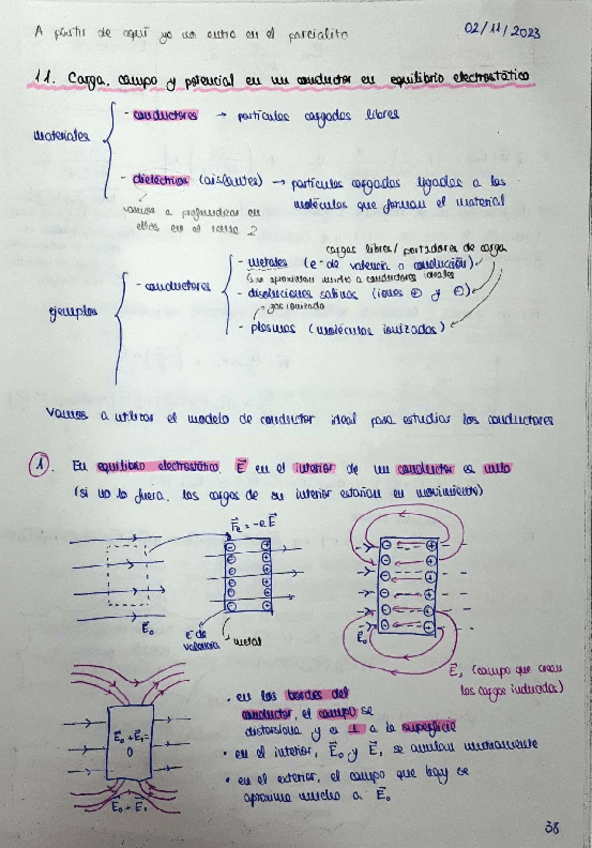 A partir de aquí ya no entra en el parcialito
02/11/2023
11. Carga, campo y potencial en un conductor en equilibrio electrostático
materiales
- conductores → partículas cargadas libres
- dieléctricos (aislantes) → partículas cargadas ligadas a las
moléculas que forman el material
vamos a profundizar en
ellos en el tema 2
ejemplos
- conductores
cargas libres/ portadores de carga
- metales (e⁻ de valencia o conducción)
se aproximan mucho a conductores ideales
- disoluciones salinas (iones ⊕ y ⊖)
gas ionizado
- plasmas (moléculas ionizadas)
Vamos a utilizar el modelo de conductor ideal para estudiar los conductores
1. En equilibrio electrostático, E⃗ en el interior de un conductor es nulo
(si no lo fuera, las cargas de su interior estarían en movimiento)
F⃗e = -e E⃗
E⃗₀
e⁻ de
valencia
metal
E⃗₀
E⃗₁ (campo que crean
las cargas inducidas)
E⃗₀ + E⃗₁ =
0
E⃗₀ + E⃗₁
· en los bordes del
conductor, el campo se
distorsiona y es ⊥ a la superficie
· en el interior, E⃗₀ y E⃗₁ se anulan mutuamente
· en el exterior, el campo que hay se
aproxima mucho a E⃗₀
38